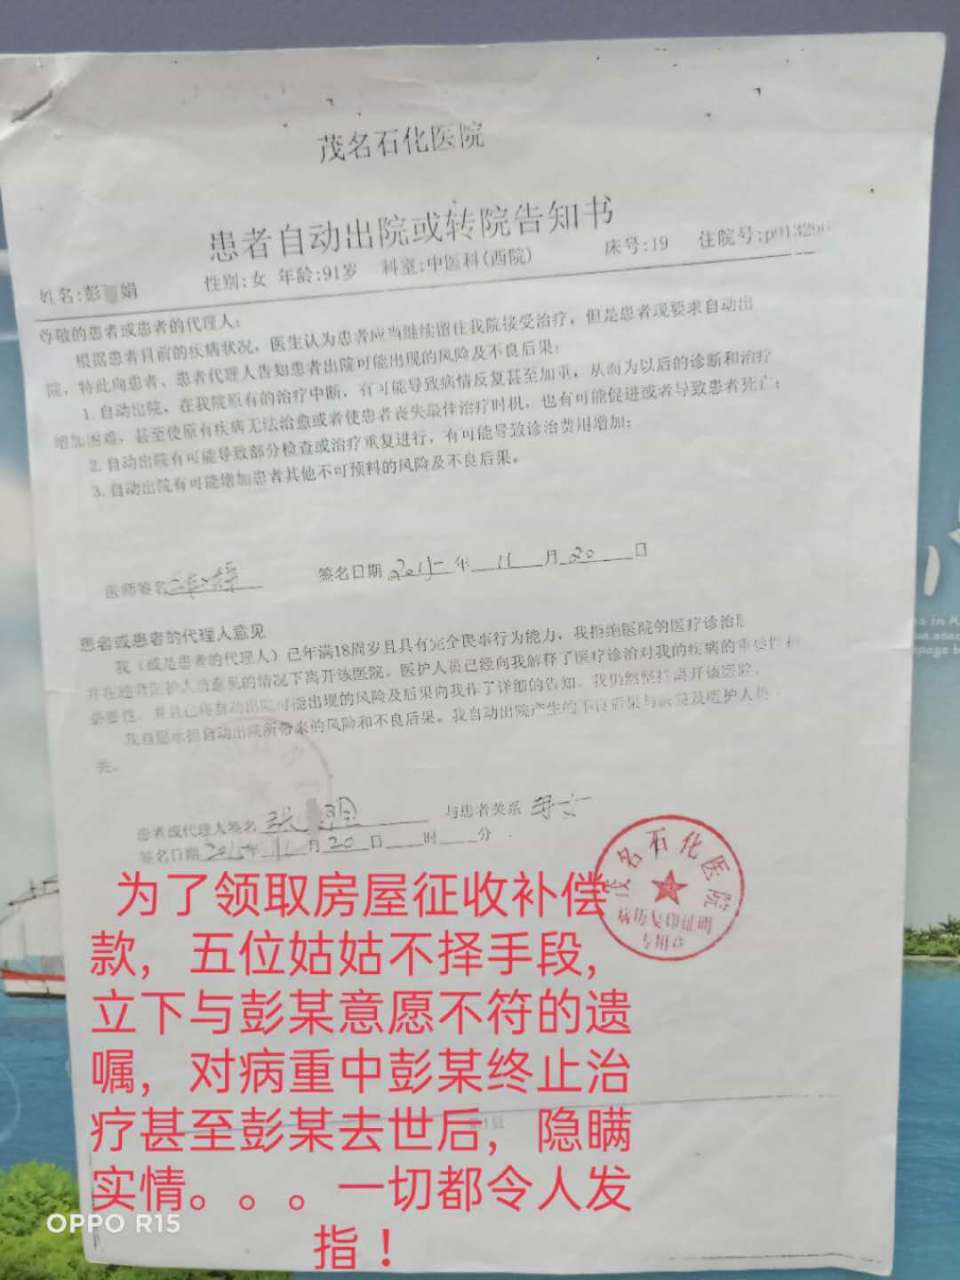 茂名石化医院
患者自动出院或转院告知书
姓名:彭 娟 性别:女 年龄:91岁 科室:中医科(西院) 床号:19 住院号:p013266
尊敬的患者或患者的代理人:
根据患者目前的疾病状况，医生认为患者应当继续留住我院接受治疗，但是患者现要求自动出
院，特此向患者、患者代理人告知患者出院可能出现的风险及不良后果:
1.自动出院，在我院原有的治疗中断，有可能导致病情反复甚至加重，从而为以后的诊断和治疗
增加困难，甚至使原有疾病无法治愈或者使患者丧失最佳治疗时机，也有可能促进或者导致患者死亡;
2.自动出院有可能导致部分检查或治疗重复进行，有可能导致诊治费用增加;
3.自动出院有可能增加患者其他不可预料的风险及不良后果。
医师签名 签名日期 年 11 月 20 日
患者或患者的代理人意见
我（或是患者的代理人）已年满18周岁且具有完全民事行为能力，我拒绝医院的医疗诊治
并在违背医护人员意见的情况下离开该医院。医护人员已经向我解释了医疗诊治对我的疾病的重要性和
必要性，并且已将自动出院可能出现的风险及后果向我作了详细的告知。我仍然坚持离开该医院。
我自愿承担自动出院所带来的风险和不良后果。我自动出院产生的不良后果与医院及医护人员
关。
患者或代理人签名 张 与患者关系
签名日期 2015年11月20日 时 分
茂名石化医院
病历复印证明
专用章
为了领取房屋征收补偿
款，五位姑姑不择手段，
立下与彭某意愿不符的遗
嘱，对病重中彭某终止治
疗甚至彭某去世后，隐瞒
实情。。。一切都令人发
指！
第1页
OPPO R15